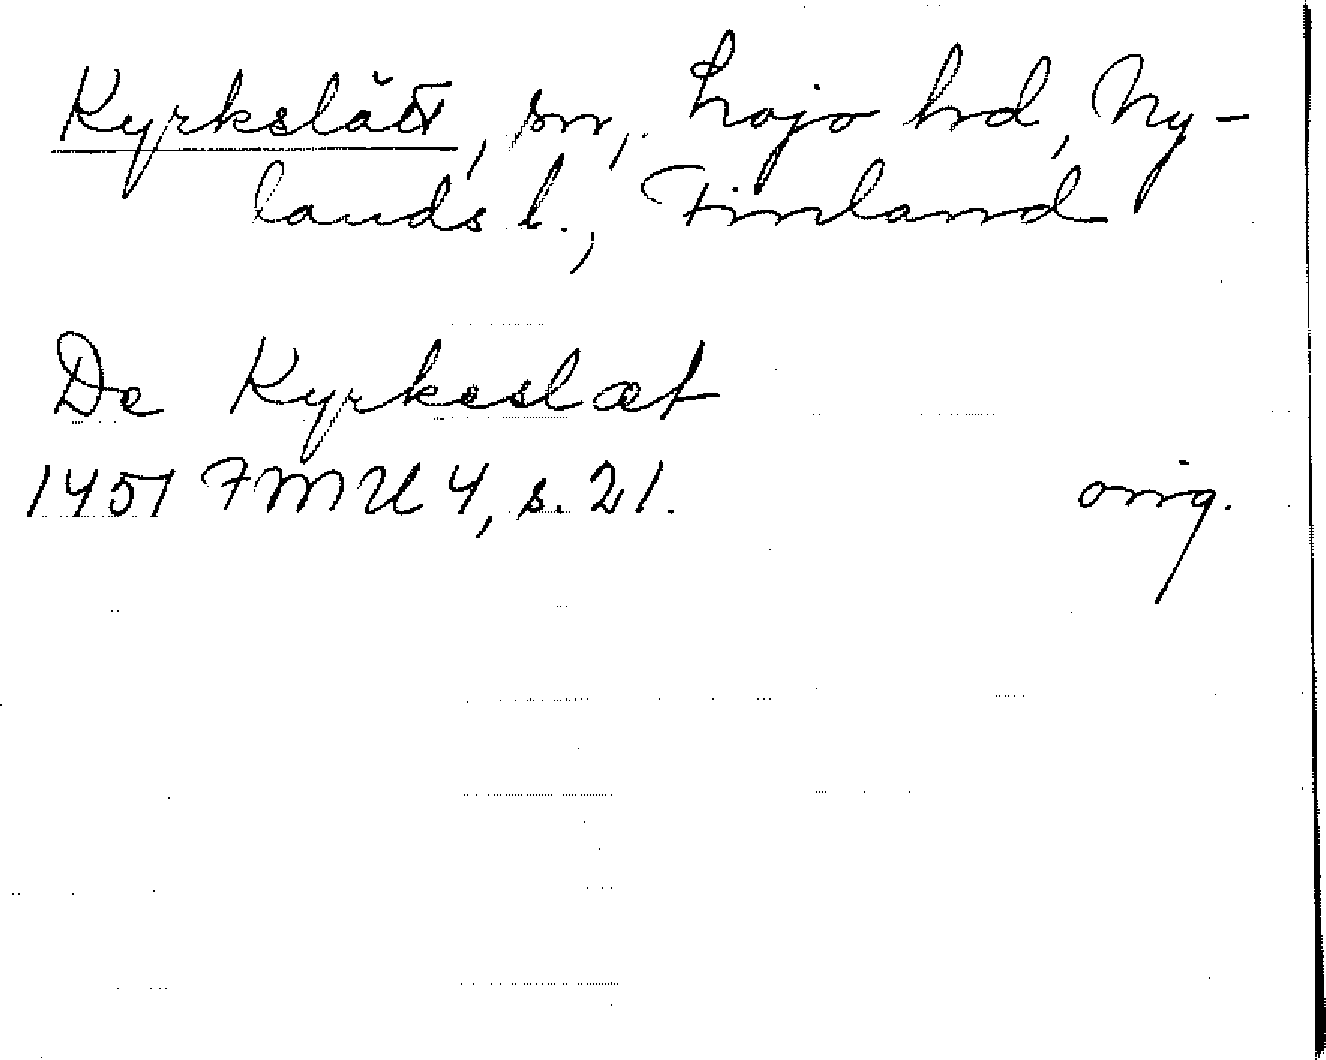 Kyrkslätt, sn, Lojo hd, Ny-
lands l., Finland
De Kyrkeslæt
1451 FMU 4, s. 21. orig.